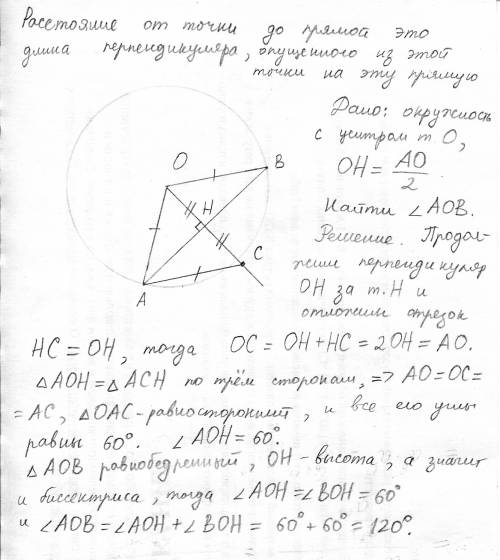 Расстояние от точки до прямой это
длина перпендикуляра, опущенного из этой
точки на эту прямую
Дано: окружность
с центром т О,
OH = AO/2.
Найти ∠AOB.
Решение. Продол-
жим перпендикуляр
OH за т. H и
отложим отрезок
O
B
H
C
A
HC = OH, тогда OC = OH + HC = 2OH = AO.
△AOH = △ACH по трём сторонам, => AO = OC =
= AC, △OAC - равносторонний, и все его углы
равны 60°. ∠AOH = 60°.
△AOB равнобедренный, OH - высота, а значит
и биссектриса, тогда ∠AOH = ∠BOH = 60°
и ∠AOB = ∠AOH + ∠BOH = 60° + 60° = 120°.